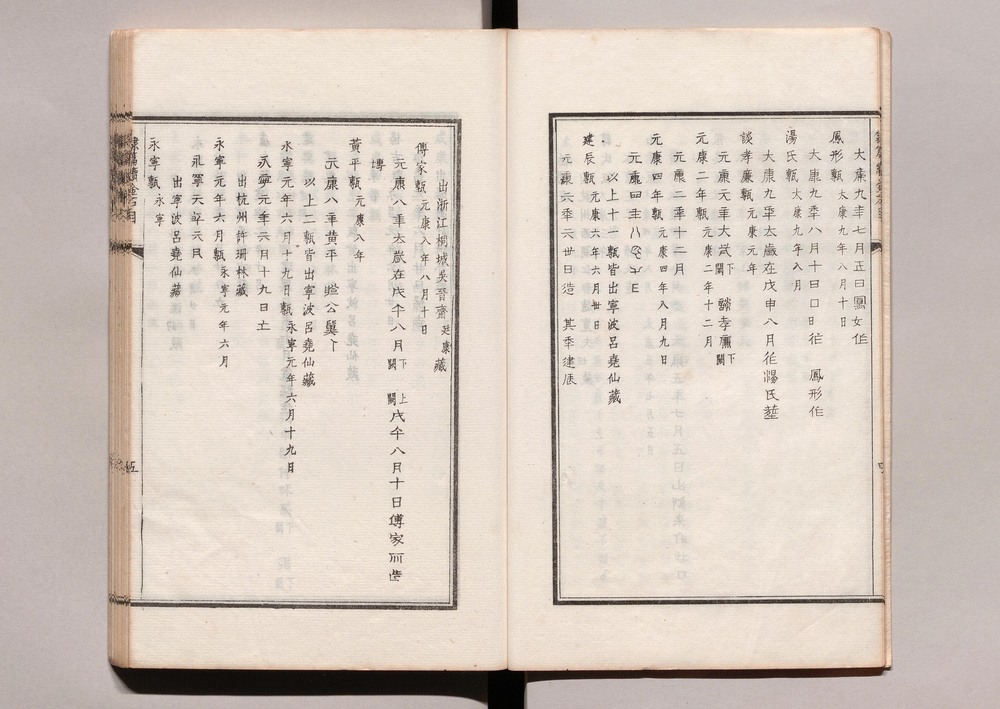 太康九年七月五日鳳女作
鳳形甎 太康九年八月十日
大康九年八月十日 作 鳳形作
湯氏甎 太康九年八月
大康九年太歲在戊申八月作湯氏
談孝廉甎 元康元年
元康元年大歲 下闕 孝廉 下闕
元康二年甎 元康二年十二月
元康二年十二月
元康四年甎 元康四年八月九日
元康四年八
以上十一甎皆出寧波呂堯仙藏
建辰甎 元康六年六月卅日
元康六年六世日造 其年建辰
出浙江桐城吳晉齋廷康藏
傅家甎 元康八年八月十日
元康八年太歲在戊午八月 下闕 上闕 戊午八月十日傅家所
塼
黃平甎 元康八年
元康八年黃平 公
以上二甎皆出寧波呂堯仙藏
永寧元年六月十九日甎 永寧元年六月十九日
永寧元年六月十九日立
出杭州許珊林藏
永寧元年六月甎 永寧元年六月
永寧元年六月
出寧波呂堯仙藏
永寧甎 永寧
伍